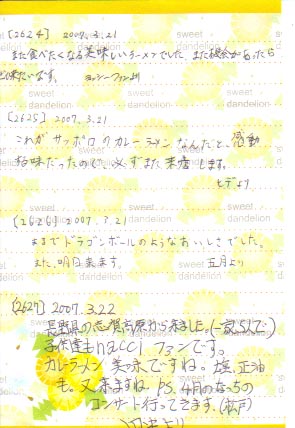 [2624] 2007.3.21
また食べたくなる美味しいラーメンでした。また機会があったら
来たいです。
[2625] 2007.3.21
これがサッポロのカレーラーメンなんだと、感動
な味だったので、必ずまた来店します。
ヒデより
[2626] 2007.3.21
まるでドラゴンボールのようなおいしさでした。
また、明日来ます。
五月より
[2627] 2007.3.22
長野県の志賀高原から来ました。(一家5人で)
子供達もnacci ファンです。
カレーラーメン 美味ですね。塩、正油
も。又来ますね PS. 4月のなっちの
コンサート行ってきます。(松戸)
より
sweet
dandelion